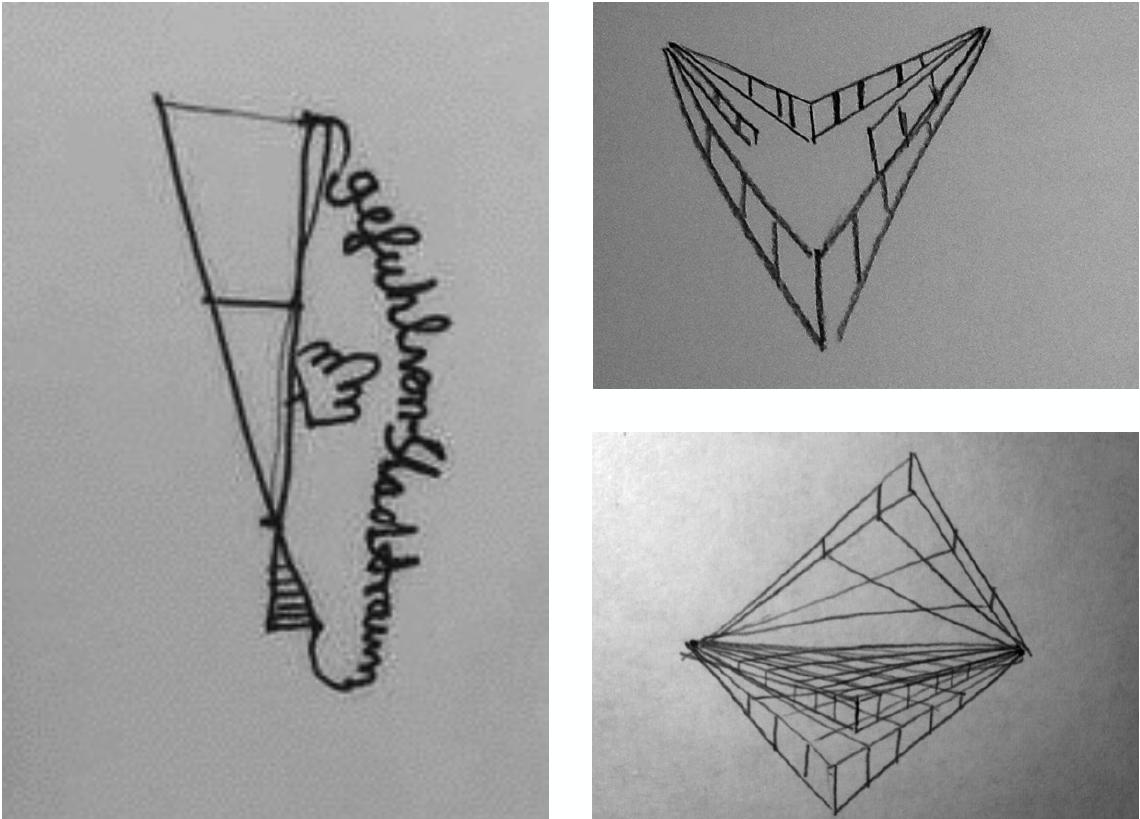 gefuhl von Stadtraum